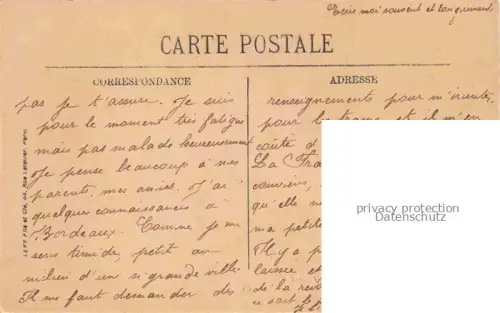 Ecris moi souvent et longuement
CARTE POSTALE
CORRESPONDANCE
ADRESSE
pas je t'assure. Je suis
pour le moment très fatiguée
mais pas malade heureusement
Je pense beaucoup à mes
parents, mes amies. J'ai
quelques connaissances à
Bordeaux. Comme je me
sens timide, petit au
milieu d'un si grande ville.
Il me faut demander des
renseignements pour m'orienter,
pour les trams et il m'en
coûte d
La Fra
qu'elle n
ma petite
Il y a p
laissée et
de la
privacy protection
Datenschutz